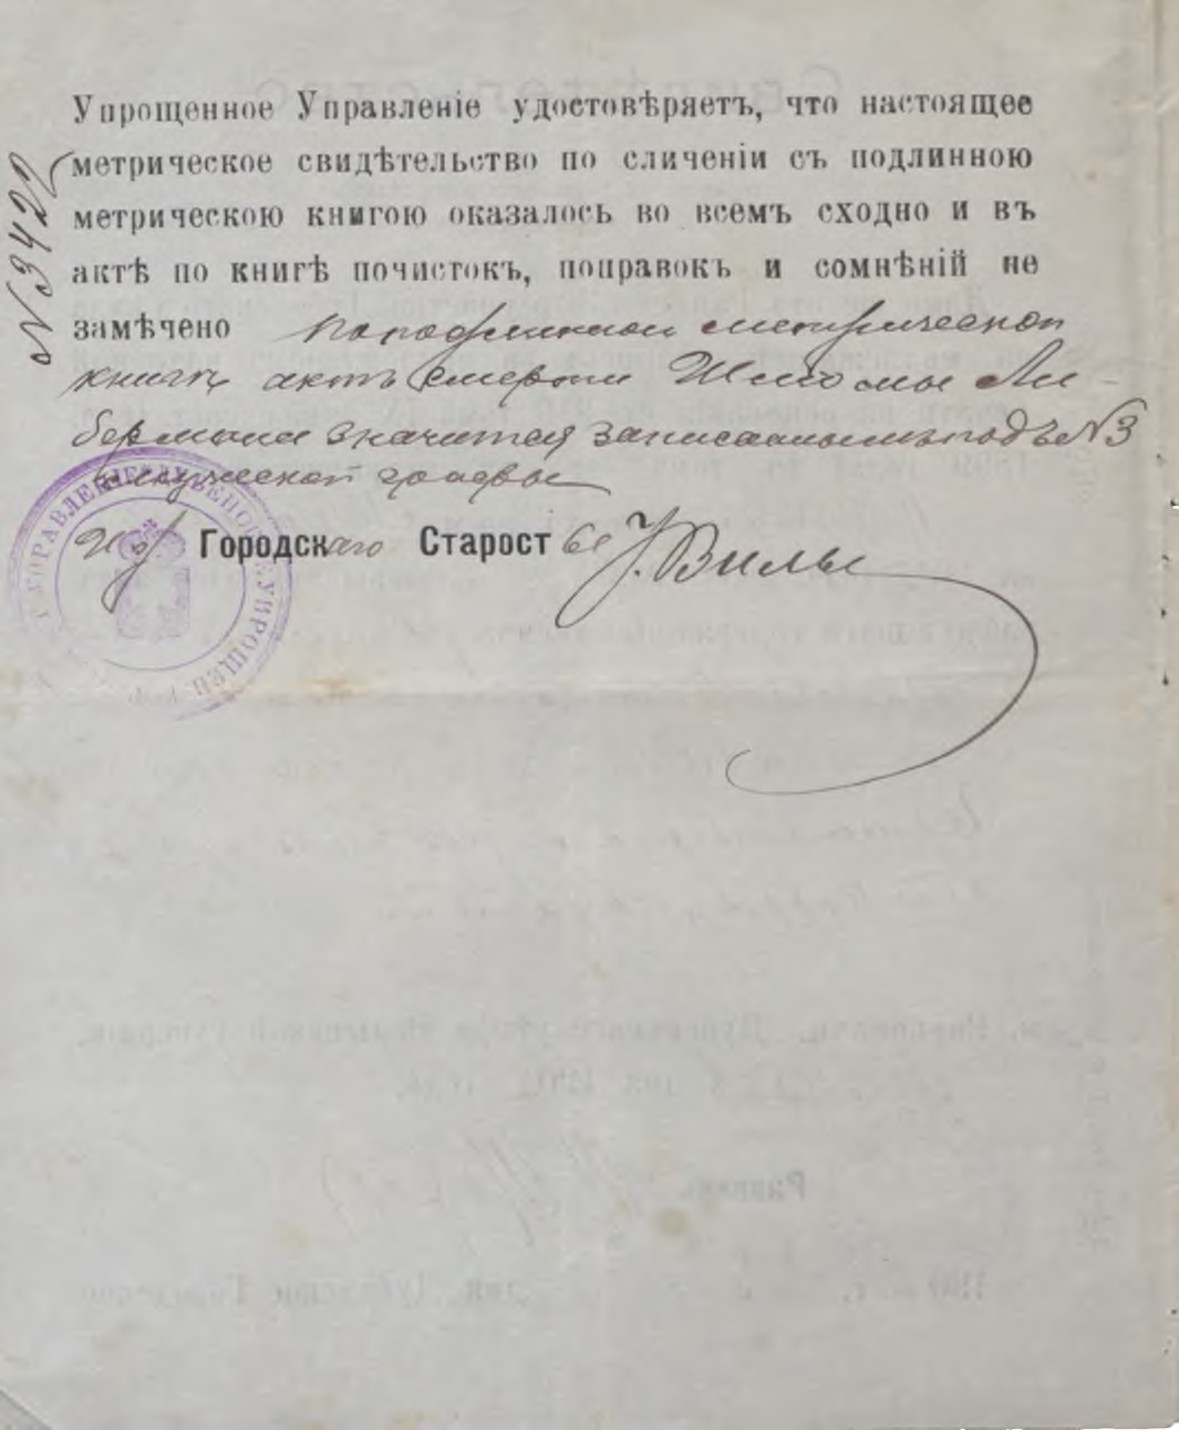 № 3422
Упрощенное Управленіе удостовѣряетъ, что настоящее
метрическое свидѣтельство по сличеніи съ подлинною
метрическою книгою оказалось во всемъ сходно и въ
актѣ по книгѣ почистокъ, поправокъ и сомнѣній не
замѣчено По подлинной метрической
книгѣ актъ смерти Шлиомы Ли-
бермана значится записаннымъ подъ № 3
мужеской графы
И об Городскаго Старост